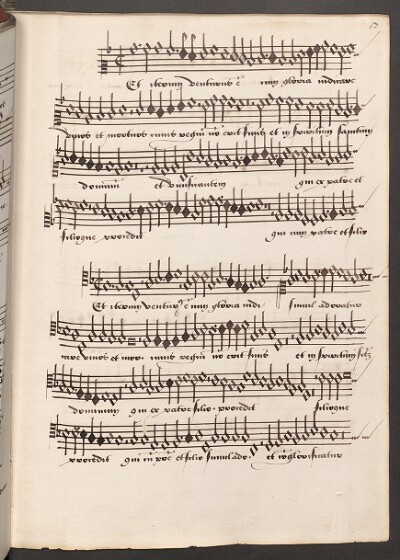 Et iterum venturus ē cum gloria iudicare
vivos et mortuos cuius regni nō erit finis et in spiritum sanctum
dominum et vivificantem qui ex patre et
filioque procedit qui cum patre et filio
Et iterum ventur9 ē cum gloria iudi simul adoratur
care vivos et mor. cuius regni nō erit finis et in spiritum
dominum qui ex patre filio. procedit filioque
procedit qui cū et filio simul ado. et cōglorificatur